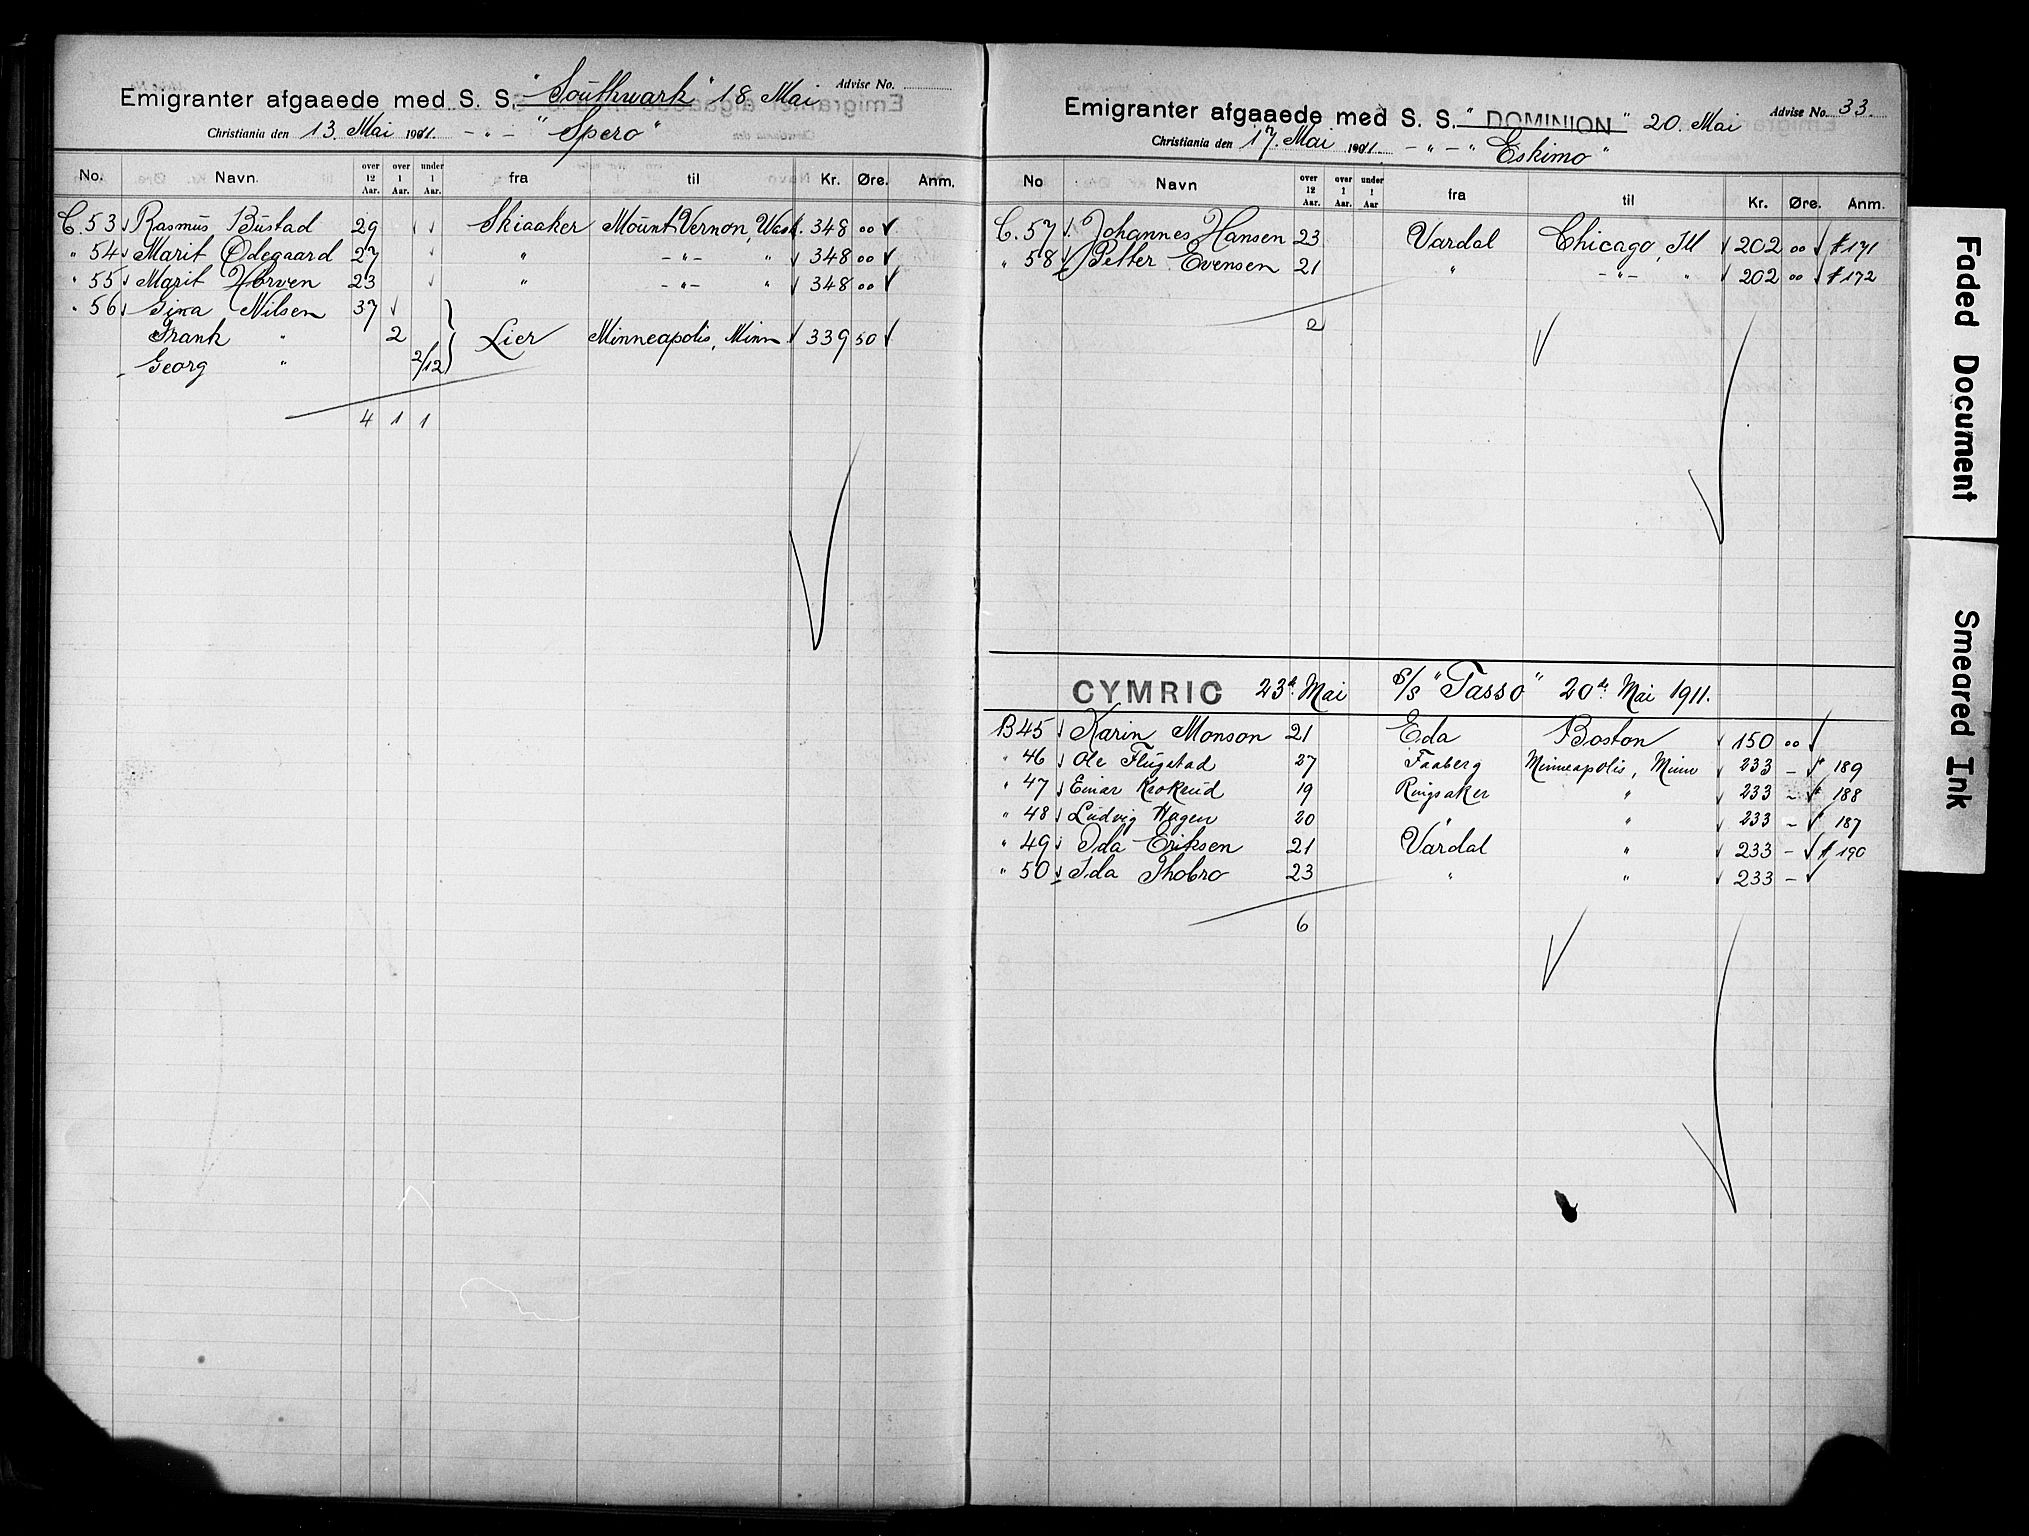 Emigranter afgaaede med S. S. "Southwark" 18 Mai Advise No.
Christiania den 13. Mai 1911. - " - "Spero"
No. Navn. over 12 Aar. over 1 Aar. under 1 Aar. fra til Kr. Øre. Anm.
C. 53 √ Rasmus Bustad 29 √ √ Skiaaker Mount Vernon, Wash. 348 00 √
" 54 √ Marit Ødegaard 27 √ " - " - " √ 348 00 √
" 55 √ Marit Horven 23 √ " - " - " √ 348 00 √
" 56 √ Gina Nilsen 37 √
Frank " 2 } Lier Minneapolis, Minn √ 339 50 √
Georg " 2/12
4 1 1
Emigranter afgaaede med S. S. "DOMINION" 20. Mai Advise No. 33.
Christiania den 17. Mai 1911. - " - "Eskimo"
No Navn over 12 Aar. over 1 Aar. under 1 Aar fra til Kr. Øre. Anm.
C. 57 √ Johannes Hansen 23 Vardal Chicago, Ill √ 202 00 √ # 171
" 58 √ Petter Evensen 21 " - " - " √ 202 00 √ # 172
2
CYMRIC 23d Mai S/S "Tasso" 20de Mai 1911.
B 45 √ Karin Monson 21 Eda Boston √ 150 00 √
" 46 √ Ole Flugstad 27 Faaberg Minneapolis, Minn √ 233 - √ # 189
" 47 √ Einar Krokrud 19 Ringsaker " √ 233 - √ # 188
" 48 √ Ludvig Hagen 20 " " √ 233 - √ # 187
" 49 √ Ida Eriksen 21 Vardal " √ 233 - √ # 190
" 50 √ Ida Thobro 23 " " √ 233 - √
6
Faded Document
Smeared Ink